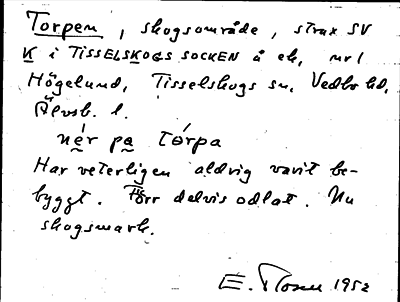 Torpen, skogsområde, strax SV
K i TISSELSKOGS SOCKEN å ek, nr 1
Högelund, Tisselskogs sn. Vedbo hd,
Älvsb. l.
nér pa tórpa
Har veterligen aldrig varit be-
byggt. Förr delvis odlat. Nu
skogsmark.
E. 1952